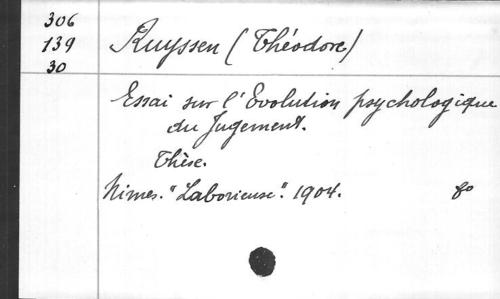 306
139
30
Ruyssen (Théodore)
Essai sur l'Evolution psychologique
du Jugement.
Thèse.
Nimes. "Laborieuse". 1904. 8º